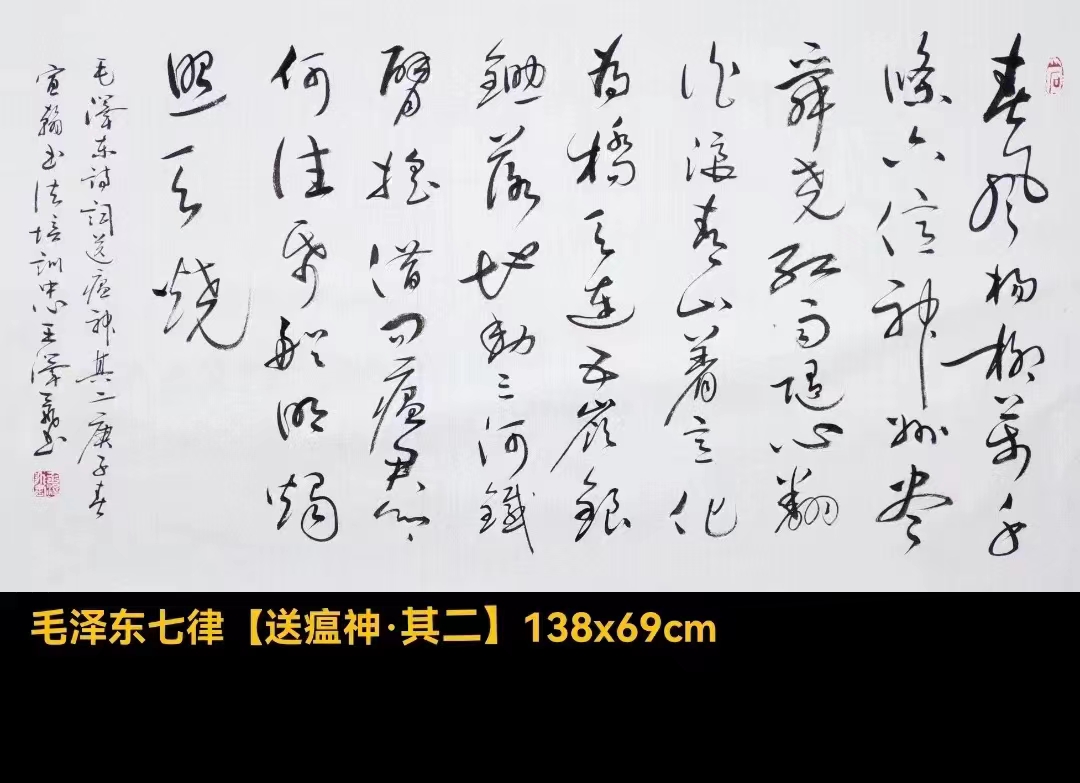 春风楊柳萬千
條六億神州盡
舜尧红雨随心翻
作浪青山着意化
为橋天连五嶺銀
鋤落地动三河鐵
臂摇借问瘟君欲
何往纸船明燭
照天燒
毛澤东詩詞送瘟神其二庚子春
宣翰书法培訓中心王澤书
毛泽东七律【送瘟神·其二】138x69cm